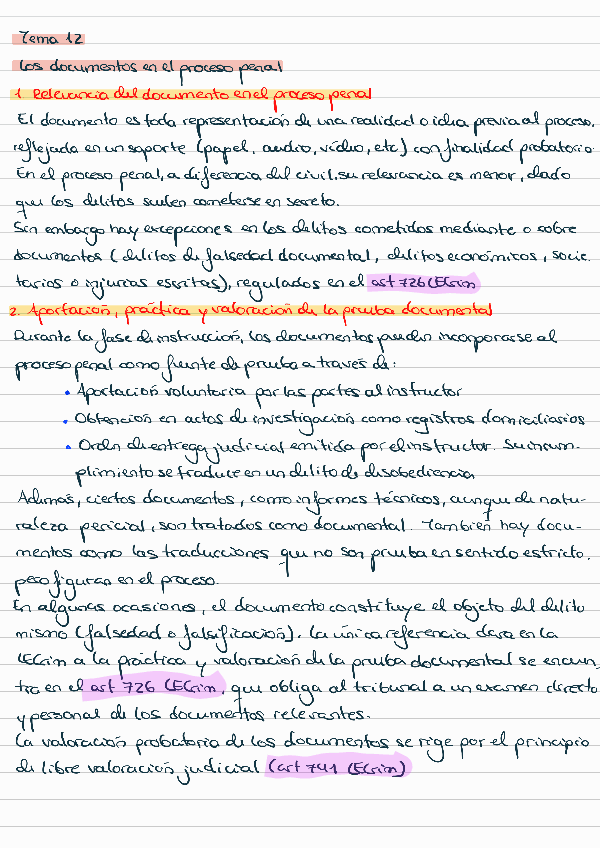 Tema 12
Los documentos en el proceso penal
1. Relevancia del documento en el proceso penal
El documento es toda representación de una realidad o idea previa al proceso,
reflejada en un soporte (papel, audio, vídeo, etc) con finalidad probatoria
En el proceso penal, a diferencia del civil, su relevancia es menor, dado
que los delitos suelen cometerse en secreto.
Sin embargo hay excepciones en los delitos cometidos mediante o sobre
documentos (delitos de falsedad documental, delitos económicos, socie-
tarios o injurias escritas), regulados en el art 726 LECrim
2. Aportación, práctica y valoración de la prueba documental
Durante la fase de instrucción, los documentos pueden incorporarse al
proceso penal como fuente de prueba a través de:
• Aportación voluntaria por las partes al instructor
• Obtención en actos de investigación como registros domiciliarios
• Orden de entrega judicial emitida por el instructor. Su incum-
plimiento se traduce en un delito de desobediencia
Además, ciertos documentos, como informes técnicos, aunque de natu-
raleza pericial, son tratados como documental. También hay docu-
mentos como las traducciones que no son prueba en sentido estricto,
pero figuran en el proceso.
En algunas ocasiones, el documento constituye el objeto del delito
mismo (falsedad o falsificación). La única referencia clara en la
LECrim a la práctica y valoración de la prueba documental se encuen-
tra en el art 726 LECrim, que obliga al tribunal a un examen directo
y personal de los documentos relevantes.
La valoración probatoria de los documentos se rige por el principio
de libre valoración judicial (art 741 LECrim)